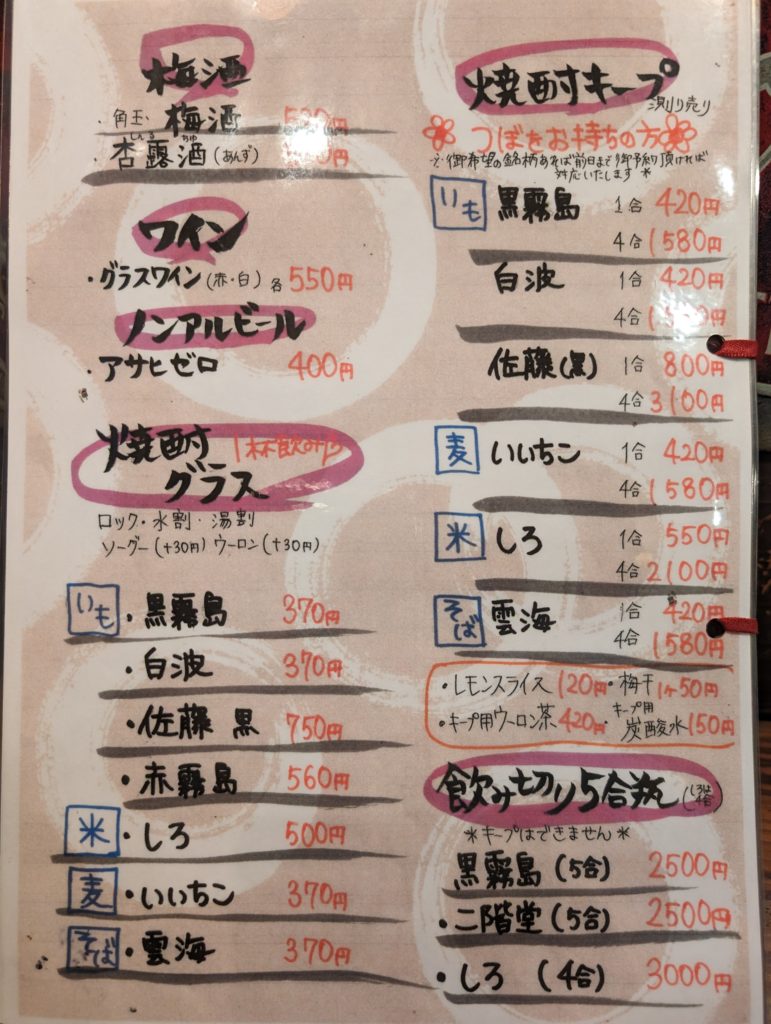 梅酒
・角玉 梅酒
しんる ちゅ
・杏露酒(あんず)
ワイン
・グラスワイン(赤・白)各550円
ノンアルビール
・アサヒゼロ 400円
焼酎 1杯飲み切り
グラス
ロック・水割・湯割
ソーダー(+30円)ウーロン(+30円)
いも・黒霧島 370円
・白波 370円
・佐藤 黒 750円
・赤霧島 560円
米・しろ 500円
麦・いいちこ 370円
そば・雲海 370円
焼酎キープ
測り売り
つぼをお持ちの方
御希望の銘柄あれば前日まで御予約頂ければ
対応いたします*
いも 黒霧島 1合 420円
4合 1580円
白波 1合 420円
4合
佐藤(黒) 1合 800円
4合 3100円
麦 いいちこ 1合 420円
4合 1580円
米 しろ 1合 550円
4合 2100円
そば 雲海 1合 420円
4合 1580円
・レモンスライス 120円・梅干1ヶ50円
・キープ用ウーロン茶 420円・キープ用炭酸水 150円
飲み切り5合瓶(しろは4合)
*キープはできません*
黒霧島(5合) 2500円
・二階堂(5合) 2500円
・しろ(4合) 3000円